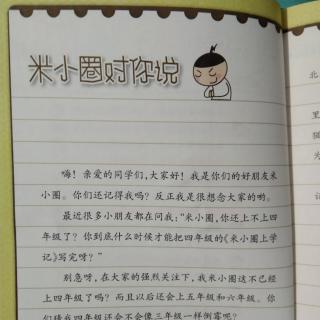 米小圈对你说
嗨！亲爱的同学们，大家好！我是你们的好朋友米
小圈。你们还记得我吗？反正我是很想念大家的哟。
最近很多小朋友都在问我：“米小圈，你还上不上四
年级了？你到底什么时候才能把四年级的《米小圈上学
记》写完呀？”
别急呀，在大家的强烈关注下，我米小圈这不已经
上四年级了吗？而且以后还会上五年级和六年级。你
们猜我四年级还会不会像三年级一样倒霉呢？
北
里
为
记